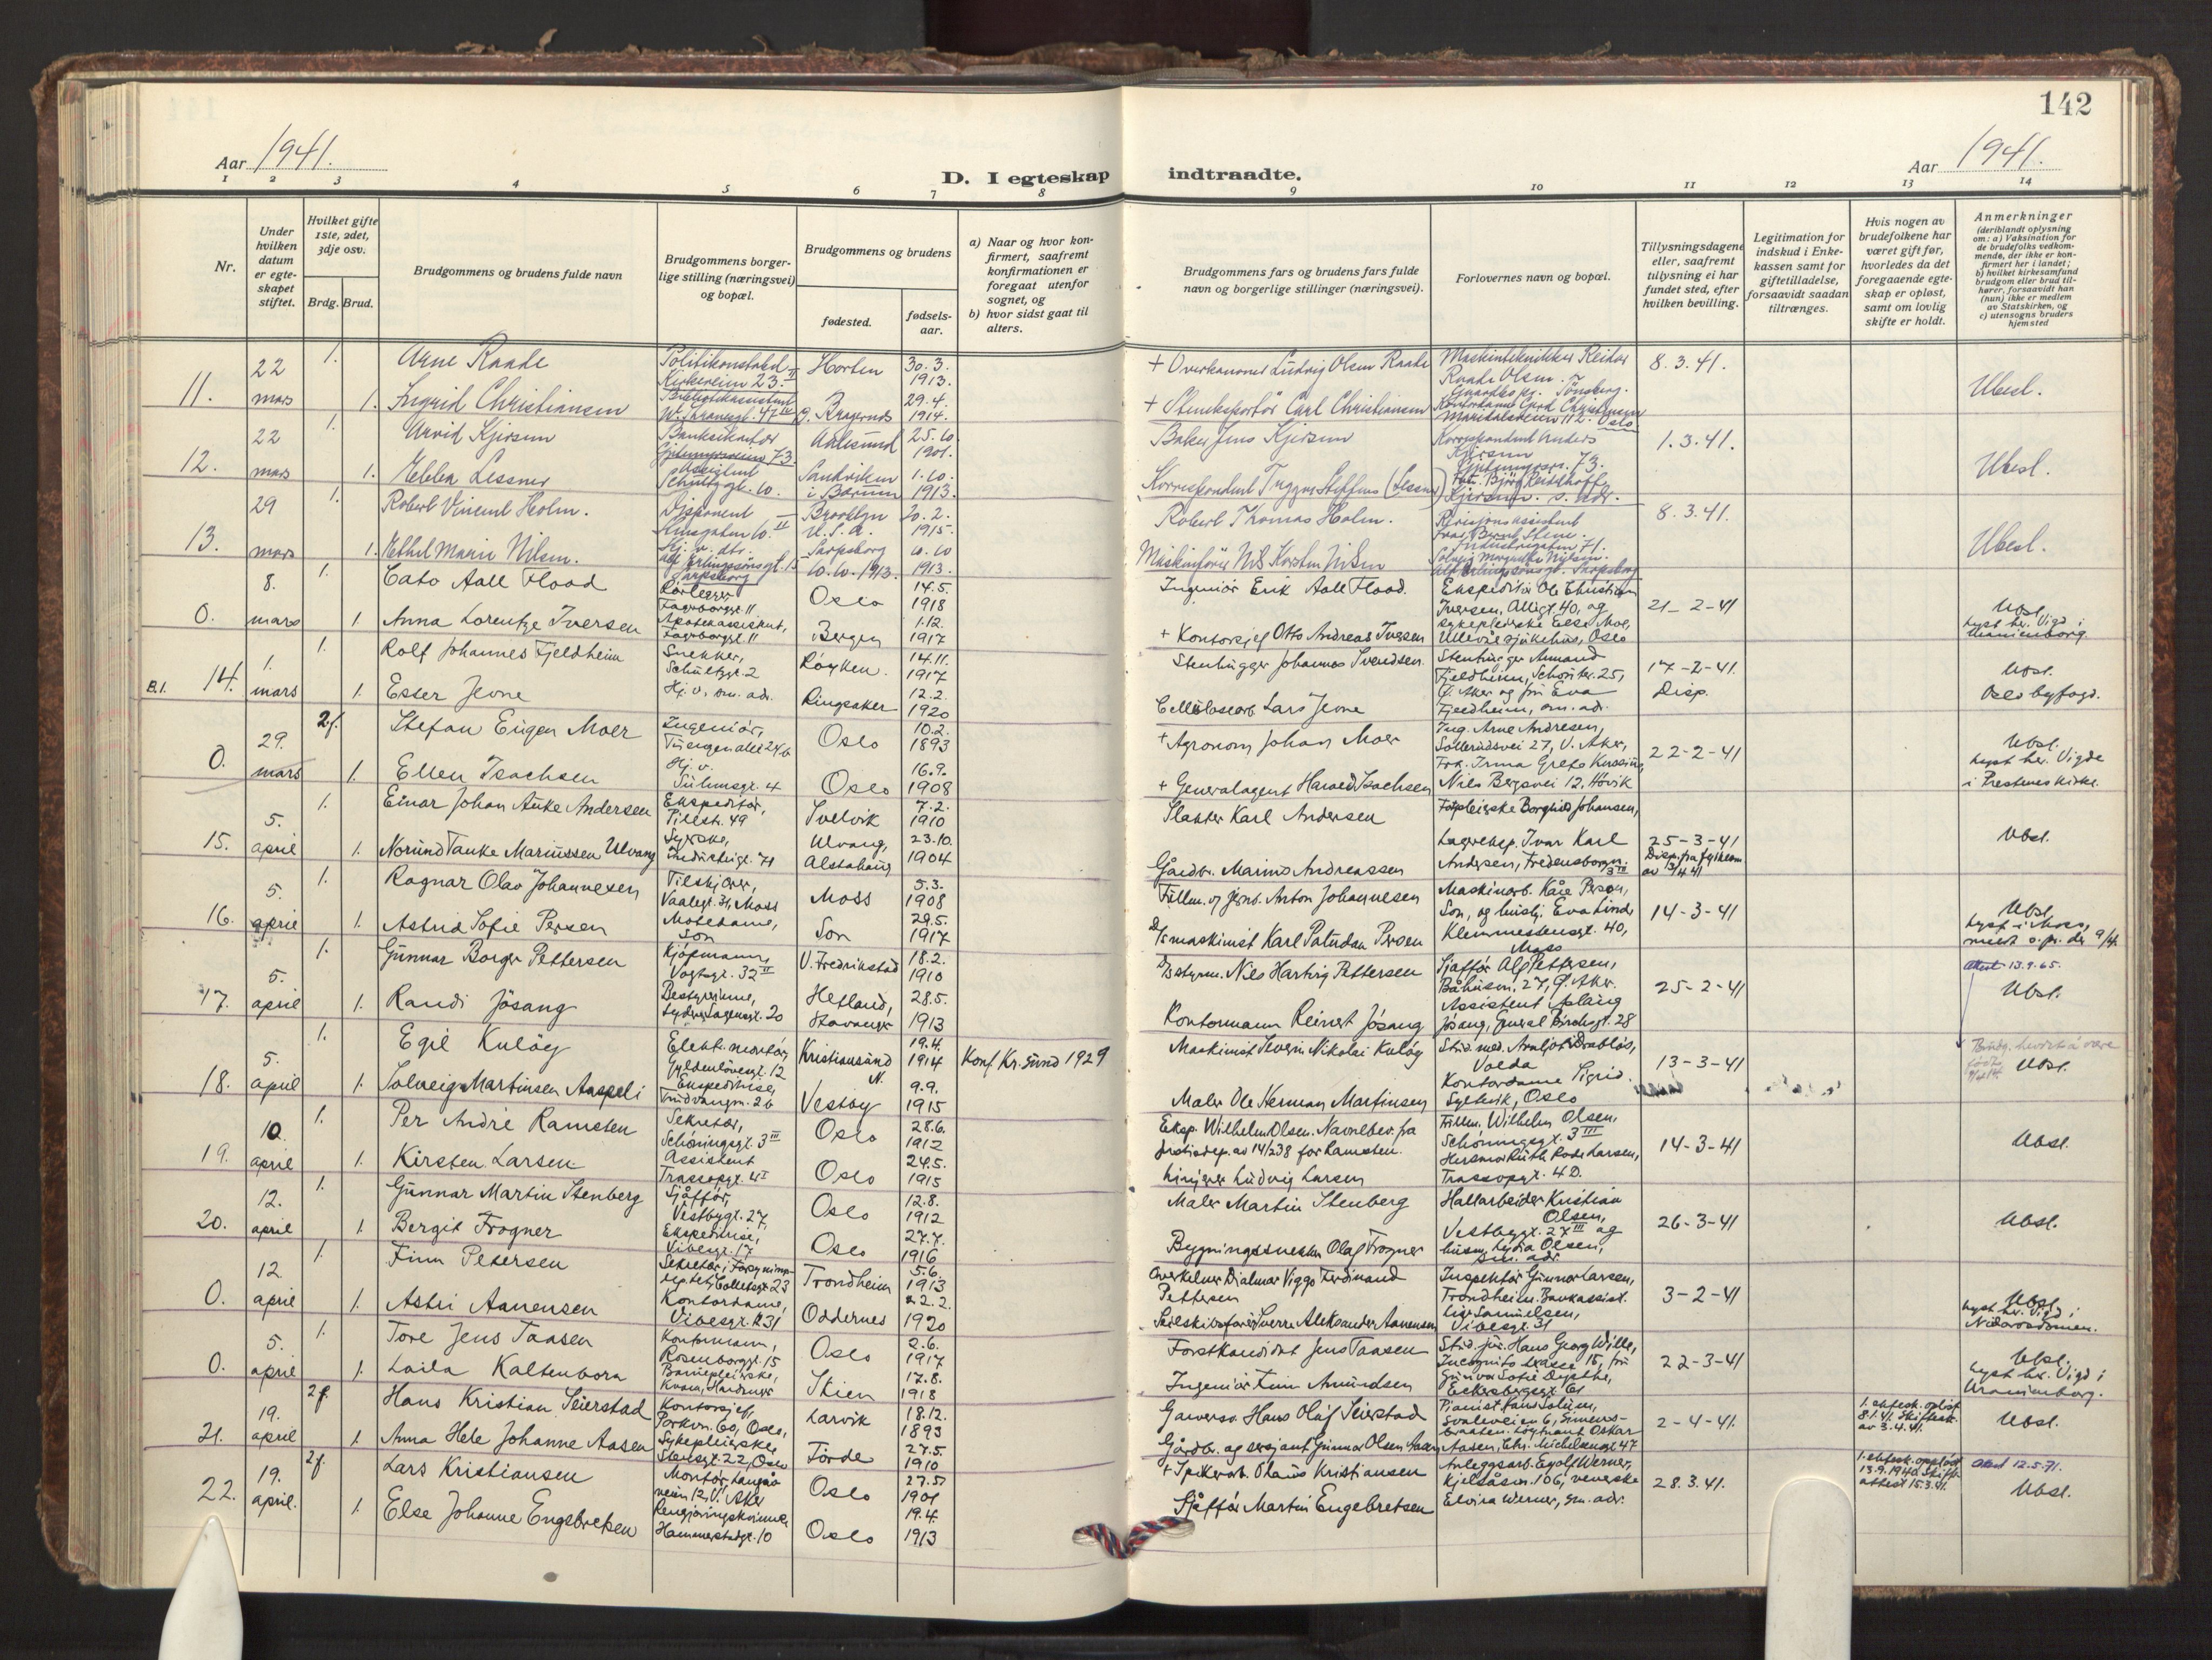 142
Aar 1941.
D. I egteskap indtraadte.
Aar 1941.
1 2 3 4 5 6 7 8 9 10 11 12 13 14
Nr.
Under hvilken datum er egte-skapet stiftet.
Hvilket gifte 1ste, 2det, 3dje osv.
Brdg. Brud.
Brudgommens og brudens fulde navn
Brudgommens borger-lige stilling (næringsvei) og bopæl.
Brudgommens og brudens
fødested.
fødsels-aar.
a) Naar og hvor kon-firmert, saafremt konfirmationen er foregaat utenfor sognet, og
b) hvor sidst gaat til alters.
Brudgommens fars og brudens fars fulde navn og borgerlige stillinger (næringsvei).
Forlovernes navn og bopæl.
Tillysningsdagene eller, saafremt tillysning ei har fundet sted, efter hvilken bevilling.
Legitimation for indskud i Enke-kassen samt for giftetilladelse, forsaavidt saadan tiltrænges.
Hvis nogen av brudefolkene har været gift før, hvorledes da det foregaaende egte-skap er opløst, samt om lovlig skifte er holdt.
Anmerkninger (deriblandt oplysning om: a) Vaksination for de brudefolks vedkom-mende, der ikke er kon-firmert her i landet; b) hvilket kirkesamfund brudgom eller brud til-hører, forsaavidt han (hun) ikke er medlem av Statskirken, og c) utensogns bruders hjemsted
11. 22 mars 1. Arne Raade Politikonstabel Kirkeveien 23 II Horten 30.3. 1913. + Overkanoner Ludvig Olsen Raade Maskintekniker Reidar Raade Olsen. Tønsberg. 8.3.41. Ubesl.
1. Ingrid Christiansen 47 IV Kragerø 29.4. 1914. + Carl Christiansen Oslo
12. 22 mars 1. Arvid Kjersem 73. Aalesund 25.10 1901. Baker Jens Kjersem Korrespondent Anders Kjersem 73. 1.3.41. Ubesl.
1. Ebba Lessner Assistent Schultzgt. 10. Sandviken i Bærum 1.10. 1913. Korrespondent Trygve Steffens
13. 29 mars 1. Robert Vincent Holm. Disponent Brooklyn U.S.A. 20.2. 1915. Robert Thomas Holm. Revisjonsassistent 8.3.41. Ubesl.
1. Ethel Marie Nilsen. Hj. v. Sarpsborg Sarpsborg 10.10.1913. 10.10 1913. Nils Karsten Nilsen Sarpsborg
0. 8. mars 1. Cato Aall Flood Rørlegger Fagerborggt. 11 Oslo 14.5. 1918 Ingeniør Erik Aall Flood. Ekspeditør Ole Christian Iversen, Allégt. 40, og 21-2-41 Ubsl. Lyst her. Vigd i Uranienborg.
1 Anna Lorentze Iversen Apotekassistent, Fagerborggt. 11 Bergen 1.12. 1917 + Kontorsjef Otto Andreas Iversen sykepleierske Else Moe, Ullevål sjukehus, Oslo
B.1. 14. 1. mars 1. Rolf Johannes Fjeldheim Snekker, Schultzgt. 2 Røyken. 14.11. 1917 Stenhugger Johannes Svendsen. Stenhugger Armand Fjeldheim, 25, 17-2-41. Disp. Ubsl. Oslo byfogd.
1. Ester Jevne Hj. v. sm. adr. Ringsaker 12.2. 1920 Cellulosearb. Lars Jevne Ø. Aker og fru Eva Fjeldheim, sm. adr.
0. 29. mars 2f. Stefan Eugen Moer Ingeniør, Tuengen alle 24b Oslo 10.2. 1893 + Agronom Johan Moer Ing. Arne Andresen, Sollerudsvei 27, V. Aker, 22-2-41 Ubsl. Lyst her. Vigde i Prestenes kirke.
1. Ellen Isachsen Hj. v. Suhmsgt. 4 Oslo 16.9. 1908 + Generalagent Harald Isachsen Frk. Irma Grete Nils Bergsvei 12, Høvik
15. 5. april 1. Einar Johan Auke Andersen Ekspeditør, Pilestr. 49 Svelvik 7.2. 1910 Slakter Karl Andersen Fotpleierske Borghild Johansen, 25-3-41 Disp. fra fylkesm av 3/4 41 Ubsl.
1. Norund Tanke Mariussen Ulvang Syerske, Industrigt. 71 Ulvang, Alstahaug 23.10. 1904 Gårdbr. Marinus Andreassen Lagereksp. Ivar Karl Andersen, Fredensborgvn. 3 III
16. 5. april 1. Ragnar Olav Johannesen Tilskjærer, Vaalegt. 31, Moss Moss 5.3. 1908 Fullm. og jernb. Anton Johannesen Maskinarb. Kåre Person, Son, og husly. Eva Linde 14-3-41 Ubsl. Lyst i Moss,
1. Astrid Sofie Persen Motedame, Son Son 29.5. 1917 D/s maskinist Karl Paludan Persen Klemmestensgt. 40, Moss
17. 5. april 1. Gunnar Borge Pettersen Kjøpmann, Vogtsgt. 32 II V. Fredrikstad 18.2. 1910 Nils Hartvig Pettersen Sjåfør Alf Pettersen, Båhusvn. 27, Ø. Aker. 25-2-41 Attest 13.9.65. Ubsl.
1. Randi Jøsang Bestyrerinne, Lyder Sagensgt. 20 Hetland, Stavanger 28.5. 1913 Kontormann Reinert Jøsang Assistent Aslaug Jøsang, General Birchsgt. 28
18. 5. april 1. Egil Kuløy Elekt. montør, Gyldenløvesgt. 12 Kristiansund N. 19.4. 1914 Konf. Kr.sund 1929 Maskinist Severin Nikolai Kuløy Stud. med. Arnljot Drabløs, Volda 13-3-41 Ubsl.
1. Solveig Martinsen Aaspeli Ekspeditrise, Trudvangvn. 26 Vestby 9.9. 1915 Maler Ole Herman Martinsen Kontordame Sigrid Syltevik, Oslo
19. 10. april 1. Per André Ramsten Sekretær, Schøningsgt. 3 III Oslo 28.6. 1912 Eksp. Wilhelm Olsen. Navnebev. fra Justisdep. av 14/238 for Ramsten. Fullm. Wilhelm Olsen, Schøningsgt. 3 III 14-3-41 Ubsl.
1. Kirsten Larsen Assistent Trassopgt. 4 I Oslo 24.5. 1915 Linjerer Ludvig Larsen Husmor Ruth Larsen, Trassopgt. 4 D.
20. 12. april 1. Gunnar Martin Stenberg Sjåffør, Vestbygt. 27, Oslo 12.8. 1912 Maler Martin Stenberg Hallarbeider Kristian Olsen, Vestbygt. 27 III og 26-3-41 Ubsl.
1. Bergit Frogner Ekspeditrise, Vibesgt. 17 Oslo 27.7. 1916 Bygningssnekker Olaf Frogner husm. Lydia Olsen, sm. adr.
0. 12 april 1. Finn Petersen Sekretær i Forsynings-dep.tet, Colletsgt 23 Trondheim 5.6. 1913 Overkelner Dialmar Viggo Ferdinand Pettersen Inspektør Gunnar Larsen, Trondheim. Bankassist. 3-2-41 Ubsl. Lyst her. Vigd i Nidarosdomen.
1. Astri Aanensen Kontordame, Vibesgt. 31 Oddernes 22.2. 1920 Seilskibsfører Sverre Aleksander Aanensen Samuelsen, Vibesgt. 31
0. 5. april 1. Tore Jens Taasen Kontormann, Rosenborggt. 15 Oslo 2.6. 1917 Forstkandidat Jens Taasen Stud. jur. Hans Georg Wille, Incognito terrasse 15, fru 22-3-41 Ubsl. Lyst her. Vigd i Uranienborg.
1. Laila Kaltenborn Barnepleierske, Kvam, Hardanger Skien 17.8. 1918 Ingeniør Finn Amundsen Gunvor Sofie Dyblie, Eckersbergsgt. 61
21. 19. april 2f. Hans Kristian Seierstad Kontorsjef, Parkvn. 60, Oslo, Larvik 18.12. 1893 Garversv. Hans Oluf Seierstad Pianist Hans Solum, Svaleveien 6, Simens-braaten. Løytnant Oskar 2-4-41. 1. ektesk. opløst 8.1.41. Skifteatt. av 3.4.41. Ubsl.
1. Anna Hele Johanne Aasen Sykepleierske, Stensgt. 22, Oslo Førde 27.5 1910 Gårdbr. og sersjant Gunnar Olsen Aasen Aasen, Chr. Michelsensgt. 47
22. 19. april. 2f. Lars Kristiansen Montør, Langåsveien 12, V. Aker Oslo 27.5 1901 + Spikerarb. Olaus Kristiansen Anleggsarb. Egolf Werner, Kjelsåsvn. 106, 28.3.41. 1. ektesk. oppløst 13.9.1940. Skifte-attest 15.3.41. Attest 12.5.71. Ubsl.
1. Else Johanne Engebretsen Rengjøringskvinne Hammerstadgt. 10 Oslo 19.4. 1913 Sjåffør Martin Engebretsen Elvira Werner, sm. adr.